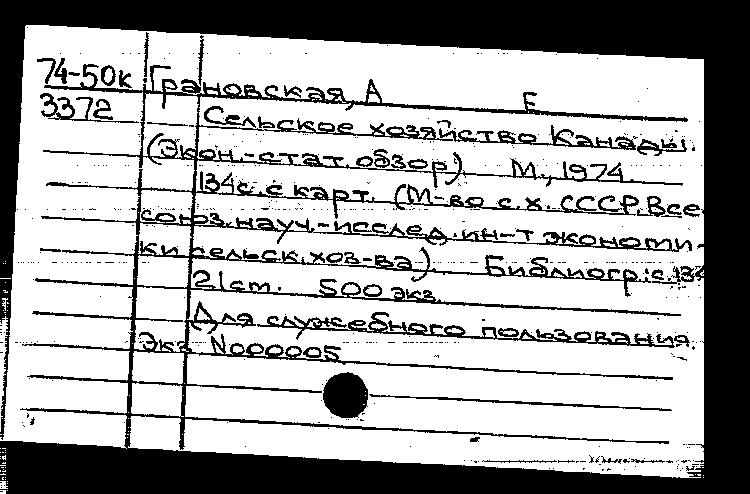 74-50к Грановская, А Е
3372 Сельское хозяйство Канады.
(Экон.-стат. обзор). М., 1974.
134с. с карт. (М-во с.х. СССР. Все-
союз. науч.-исслед. ин-т экономи-
ки сельск. хоз-ва). Библиогр.: с. 134
21 cm. 500 экз.
Для служебного пользования.
Экз N000005